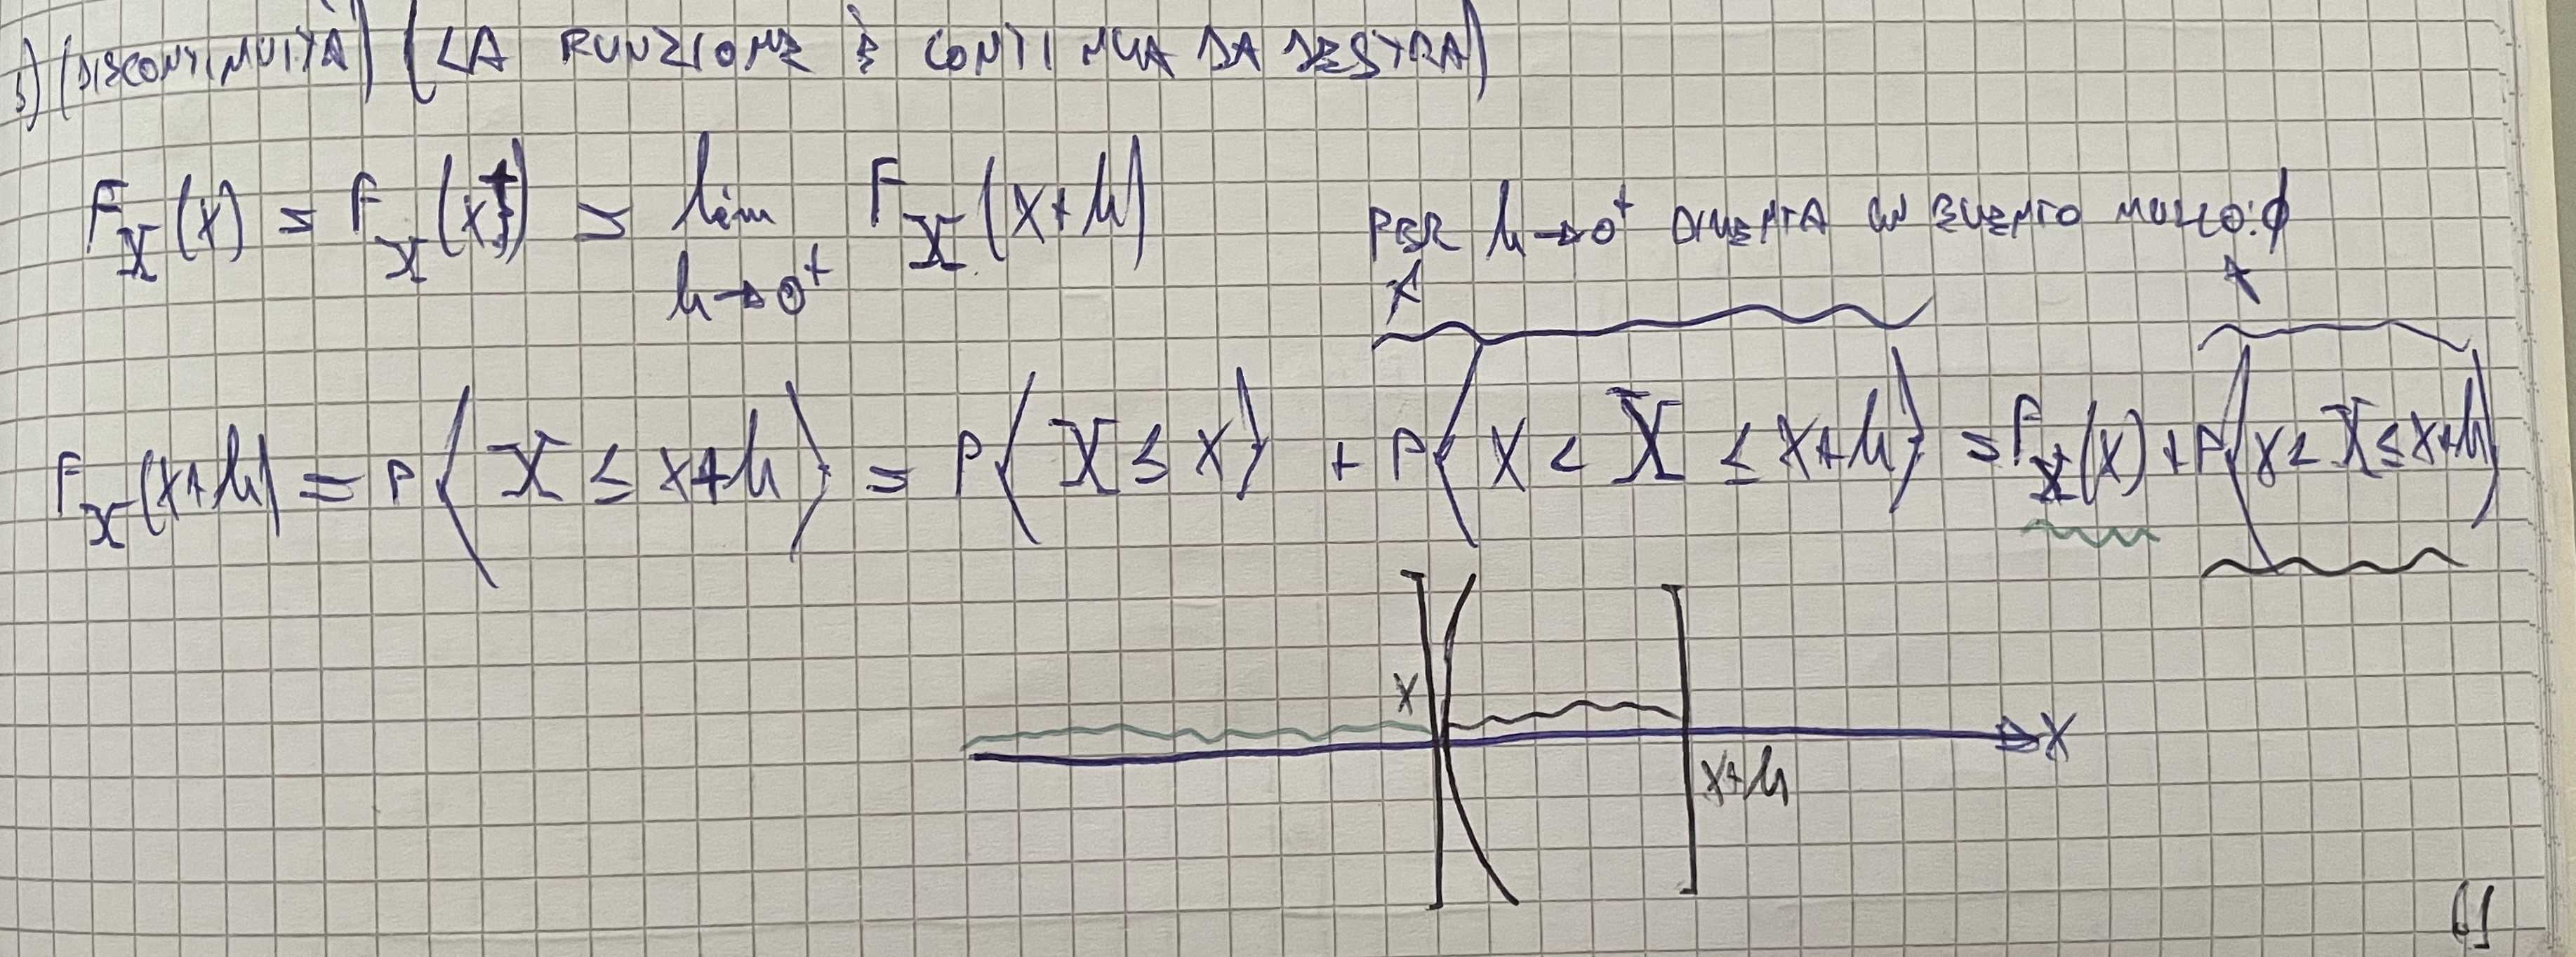 5) (DISCONTINUITÀ) (LA FUNZIONE È CONTINUA DA DESTRA)
F_X(x) = F_X(x⁺) = lim_{h→0⁺} F_X(x+h)
PER h→0⁺ DIVENTA UN EVENTO NULLO: ∅
F_X(x+h) = P{X ≤ x+h} = P{X ≤ x} + P{x < X ≤ x+h} = F_X(x) + P{x < X ≤ x+h}
x
x
x+h
61